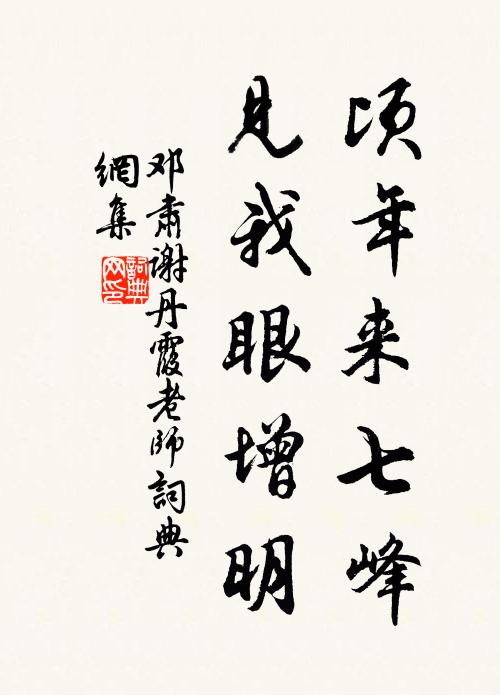 顷年来七峰
见我眼增明
邓肃谢丹霞老师詞典
網集
詞典网印